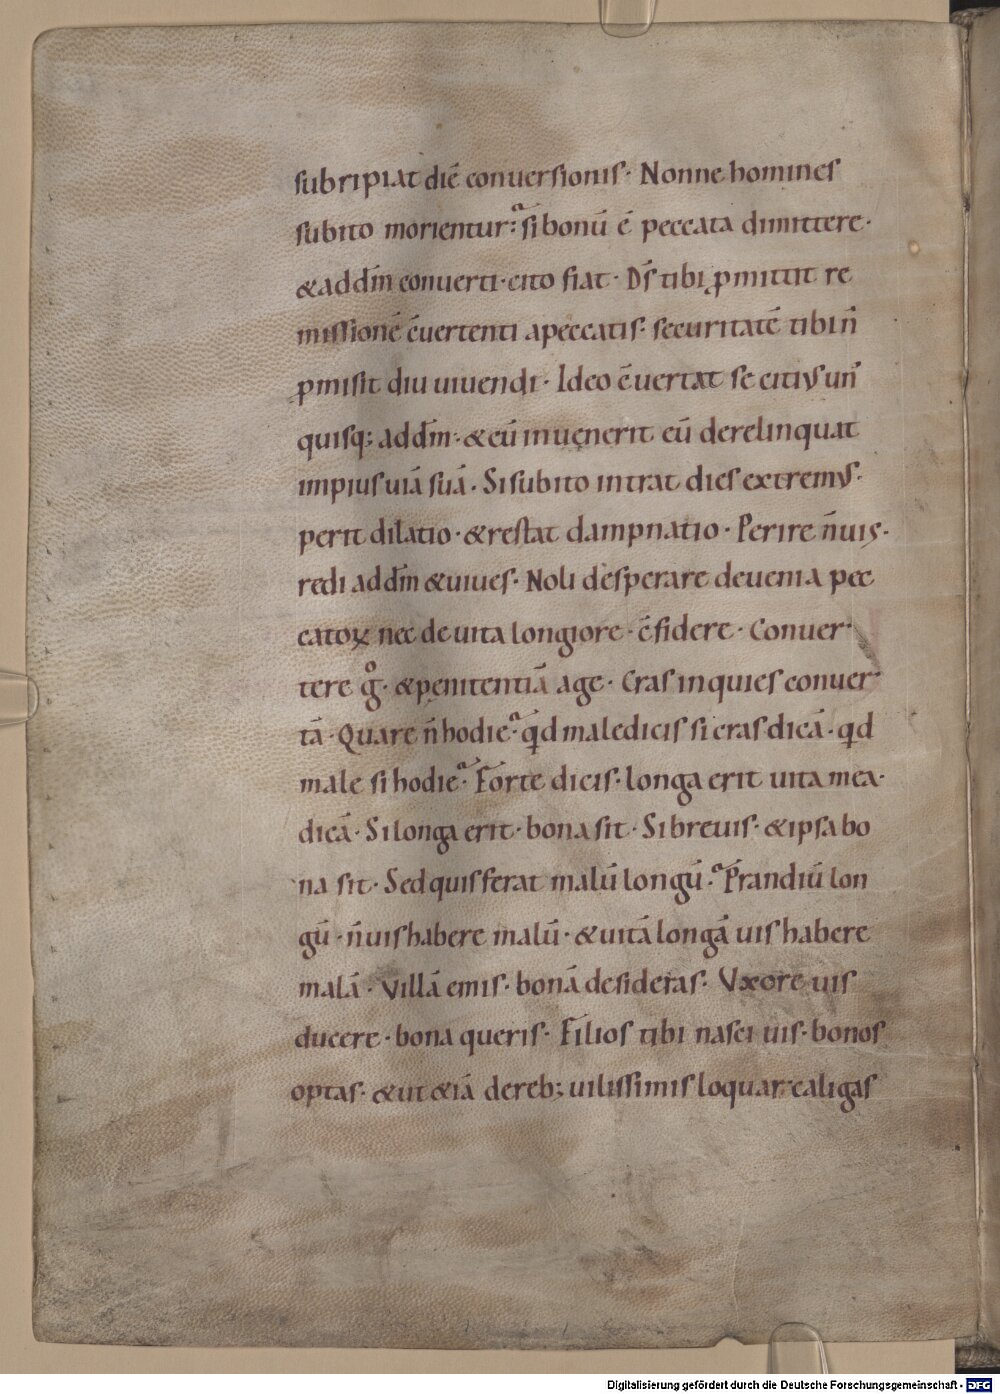 subripiat diē conuersionis· Nonne homines
subito morientur? si bonū ē peccata dimittere·
& ad dm̄ conuerti· cito fiat· Ds̄ tibi ꝓmittit re
missionē c̄uertenti a peccatis· securitatē tibi n̄
ꝓmisit diu uiuendi· Ideo c̄uertat se citius un̄
quisq; ad dm̄· & cū inuenerit eū derelinquat
impius uiā suā· Si subito intrat dies extremus·
perit dilatio· & restat dampnatio· Perire n̄ uis·
redi ad dm̄ & uiues· Noli desperare de uenia pec
catoꝝ nec de uita longiore c̄fidere· Conuer
tere gͦ· & penitentiā age· Cras inquies conuer
tā· Quare n̄ hodie? qd male dicis si cras dicā· qd
male si hodie? Forte dicis· longa erit uita mea·
dicā· Si longa erit· bona sit· Si breuis· & ipsa bo
na sit· Sed quis ferat malū longū? Prandiū lon
gū· n̄ uis habere malū· & uitā longā uis habere
malā· Villā emis· bonā desideras· Vxore uis
ducere· bona queris· Filios tibi nasci uis· bonos
optas· & ut &iā de reb; uilissimis loquar· caligas
Digitalisierung gefördert durch die Deutsche Forschungsgemeinschaft - DFG